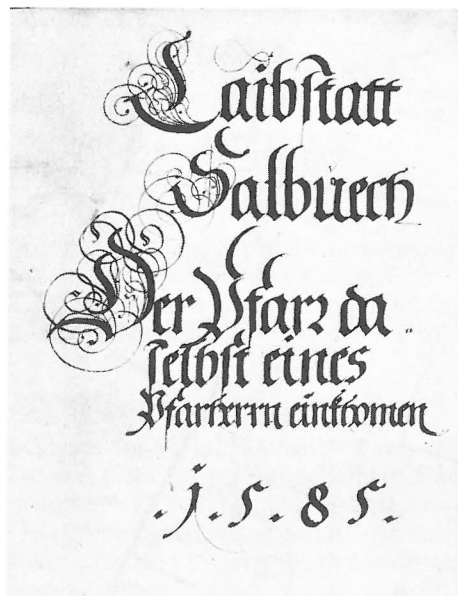 Laibstatt
Salbuech
Der Pfarr da
selbst eines
Pfarherrn einkhomen
.1.5.85.